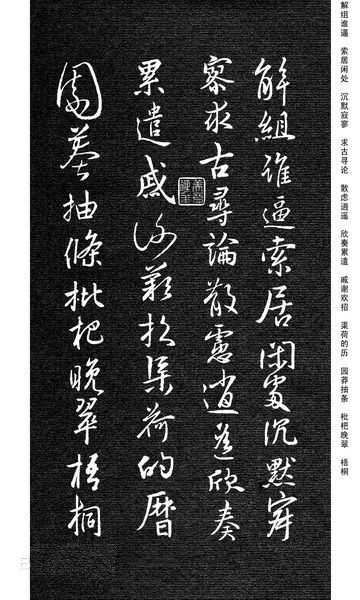 解组谁逼 索居闲处 沉默寂寥 求古寻论 散虑逍遥 欣奏累遣 戚谢欢招 渠荷的历 园莽抽条 枇杷晚翠 梧桐
解組誰逼索居閑處沉默寂
寥求古尋論散慮逍遙欣奏
累遣戚謝歡招渠荷的曆
園莽抽條枇杷晚翠梧桐